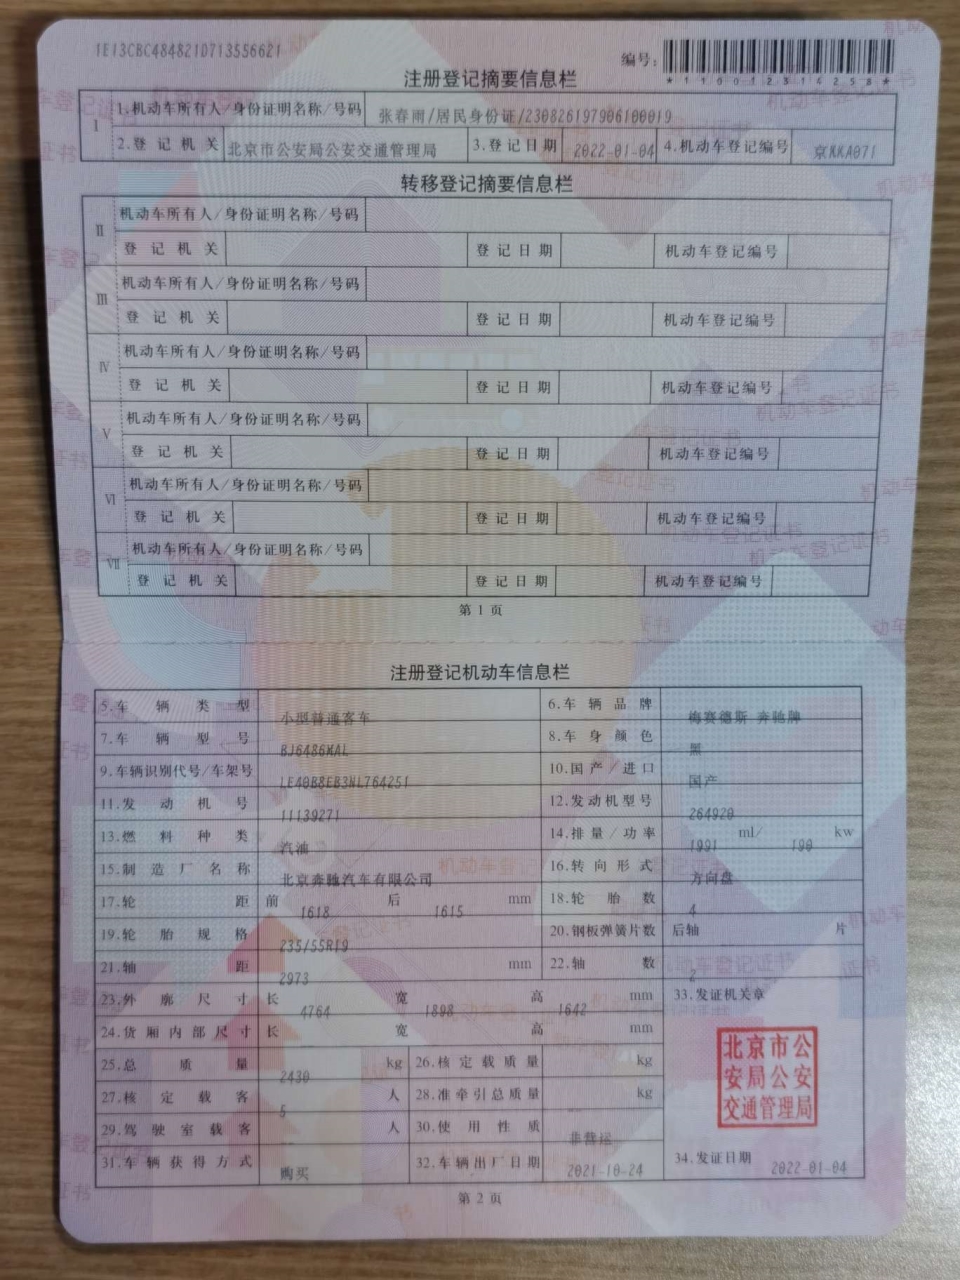 1E13CBC4848210713556621
编号:
*110012314258*
注册登记摘要信息栏
I 1.机动车所有人/身份证明名称/号码 张春雨/居民身份证/230826197906100019
2.登记机关 北京市公安局公安交通管理局 3.登记日期 2022-01-04 4.机动车登记编号 京KKA071
转移登记摘要信息栏
II 机动车所有人/身份证明名称/号码
登记机关 登记日期 机动车登记编号
III 机动车所有人/身份证明名称/号码
登记机关 登记日期 机动车登记编号
IV 机动车所有人/身份证明名称/号码
登记机关 登记日期 机动车登记编号
V 机动车所有人/身份证明名称/号码
登记机关 登记日期 机动车登记编号
VI 机动车所有人/身份证明名称/号码
登记机关 登记日期 机动车登记编号
VII 机动车所有人/身份证明名称/号码
登记机关 登记日期 机动车登记编号
第1页
注册登记机动车信息栏
5.车辆类型 小型普通客车 6.车辆品牌 梅赛德斯 奔驰牌
7.车辆型号 BJ6486MAL 8.车身颜色 黑
9.车辆识别代号/车架号 LE40B8EB3NL764251 10.国产/进口 国产
11.发动机号 11139271 12.发动机型号 264920
13.燃料种类 汽油 14.排量/功率 1991 ml/ 190 kw
15.制造厂名称 北京奔驰汽车有限公司 16.转向形式 方向盘
17.轮距 前 1618 后 1615 mm 18.轮胎数 4
19.轮胎规格 235/55R19 20.钢板弹簧片数 后轴 片
21.轴距 2973 mm 22.轴数 2
23.外廓尺寸 长 4764 宽 1898 高 1642 mm 33.发证机关章
24.货厢内部尺寸 长 宽 高 mm
25.总质量 2430 kg 26.核定载质量 kg
27.核定载客 5 人 28.准牵引总质量 -- kg
29.驾驶室载客 -- 人 30.使用性质 非营运
31.车辆获得方式 购买 32.车辆出厂日期 2021-10-24 34.发证日期 2022-01-04
北京市公
安局公安
交通管理局
第2页